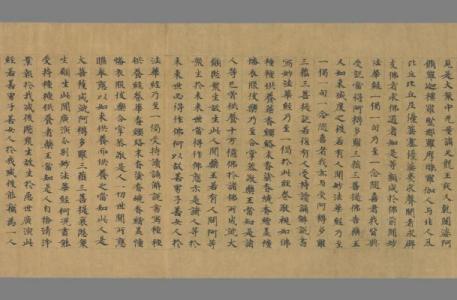 見是大衆中無量諸天龍王夜叉乾闥婆阿
脩羅迦樓羅緊那羅摩睺羅伽人與非人及
比丘比丘尼優婆塞優婆夷求聲聞者求辟
支佛者求佛道者如是等類咸於佛前聞妙
法華經一偈一句乃至一念隨喜者我皆與
受記當得阿耨多羅三藐三菩提佛告藥王
又如來滅度之後若有人聞妙法華經乃至
一偈一句一念隨喜者我亦與受阿耨多羅
三藐三菩提記若復有人受持讀誦解說書
寫妙法華經乃至一偈於此經卷敬視如佛
種種供養華香瓔珞末香塗香燒香繒蓋幢
幡衣服伎樂乃至合掌恭敬藥王當知是諸
人等已曾供養十萬億佛於諸佛所成就大
願愍衆生故生此人間藥王若有人問何等
衆生於未來世當得作佛應示是諸人等於
未來世必得作佛何以故若善男子善女人於
法華經乃至一句受持讀誦解說書寫種種
供養經卷華香瓔珞末香塗香燒香繒蓋幢
幡衣服伎樂合掌恭敬是人一切世間所應
瞻奉應以如來供養而供養之當知此人是
大菩薩成就阿耨多羅三藐三菩提哀愍衆
生願生此間廣演分別妙法華經何況盡能
受持種種供養者藥王當知是人自捨清淨
業報於我滅度後愍衆生故生於惡世廣演此
經若是善男子善女人我滅度後能竊為一人